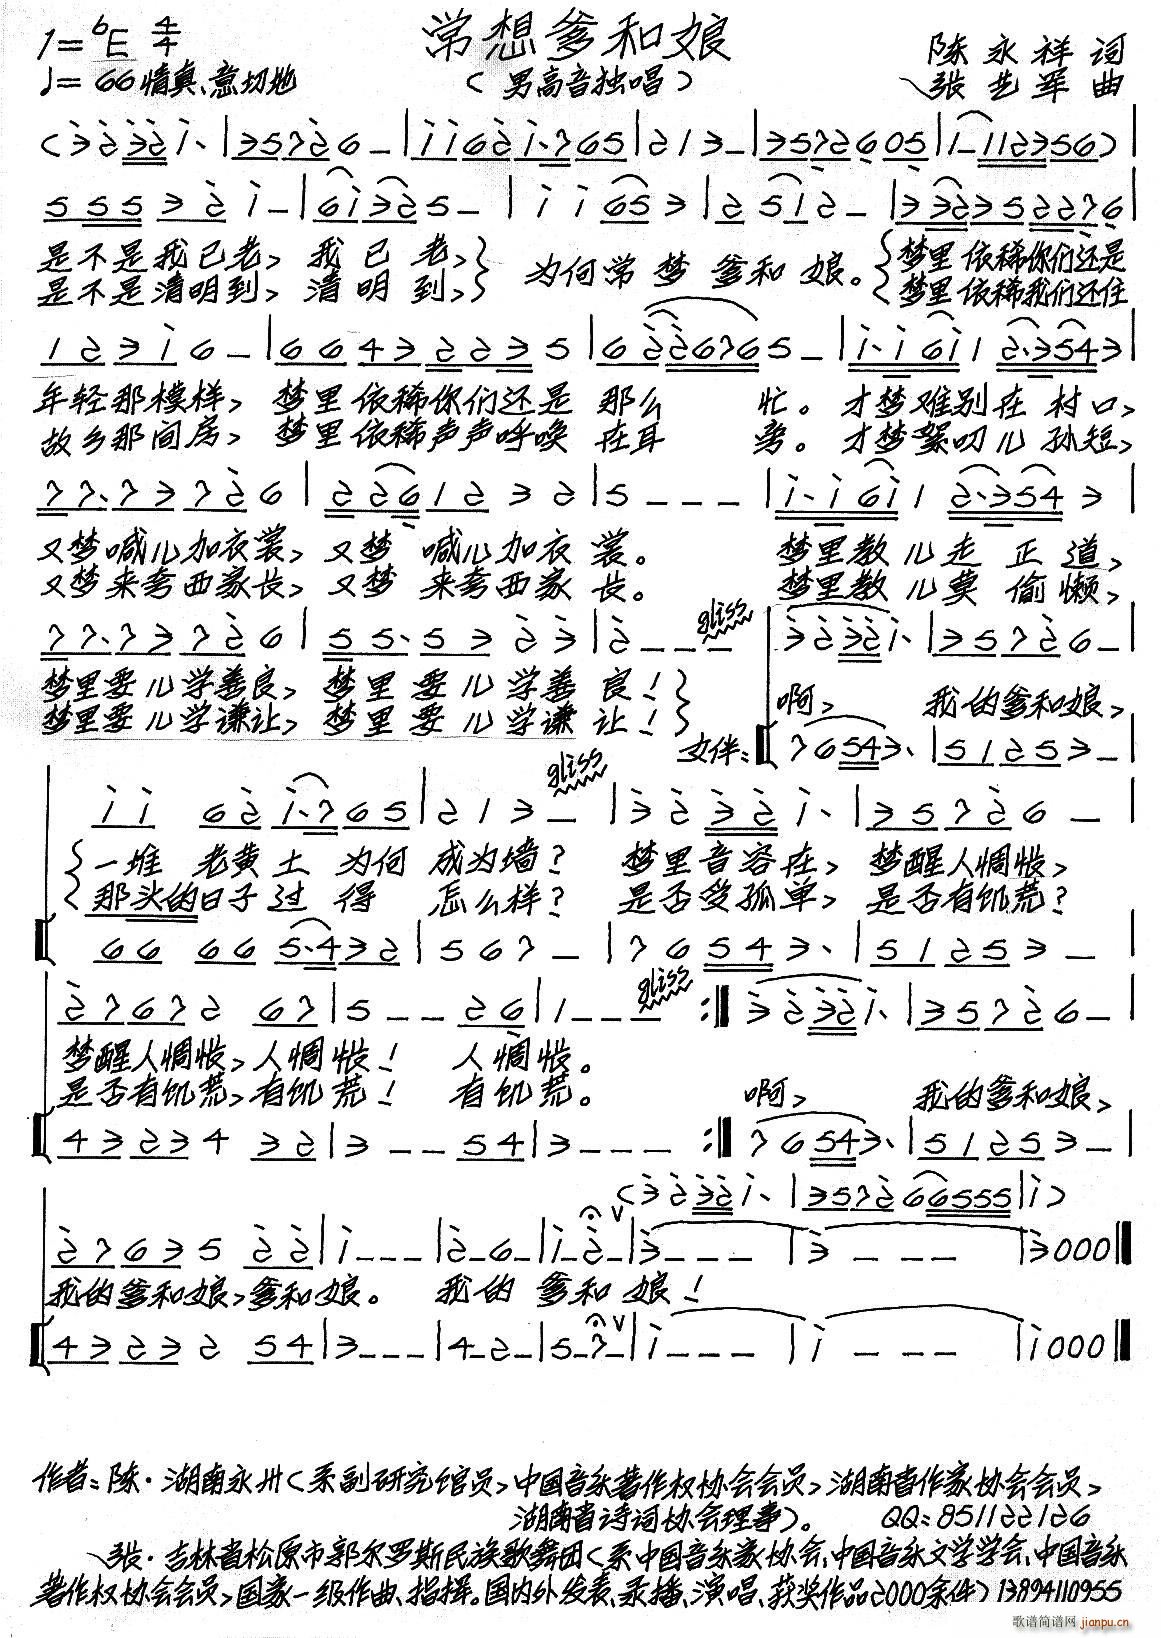 常想爹和娘
1=ᵇE 4/4
♩=66 情真、意切地
(男高音独唱)
陈永祥 词
张艺军 曲
是不是我已老, 我已老, 为何常梦爹和娘。 梦里依稀你们还是
是不是清明到, 清明到, 梦里依稀我们还住
年轻那模样, 梦里依稀你们还是那么忙。 才梦难别在村口,
故乡那间房, 梦里依稀声声呼唤在耳旁。 才梦絮叨儿孙短,
又梦喊儿加衣裳, 又梦喊儿加衣裳。 梦里教儿走正道,
又梦来夸西家长, 又梦来夸西家长。 梦里教儿莫偷懒,
gliss
梦里要儿学善良, 梦里要儿学善良! 啊, 我的爹和娘,
梦里要儿学谦让, 梦里要儿学谦让!
女伴:
gliss
一堆老黄土为何成为墙? 梦里音容在, 梦醒人惆怅,
那头的日子过得怎么样? 是否受孤单, 是否有饥荒?
gliss
梦醒人惆怅, 人惆怅! 人惆怅。
是否有饥荒, 有饥荒! 有饥荒。 啊, 我的爹和娘,
我的爹和娘, 爹和娘。 我的爹和娘!
作者: 陈·湖南永州(系副研究馆员, 中国音乐著作权协会会员, 湖南省作家协会会员,
湖南省诗词协会理事)。 QQ:851122126
张·吉林省松原市郭尔罗斯民族歌舞团(系中国音乐家协会、中国音乐文学学会、中国音乐
著作权协会会员, 国家一级作曲、指挥。国内外发表、录播、演唱、获奖作品2000余件) 13894110955
歌谱简谱网 jianpu.cn